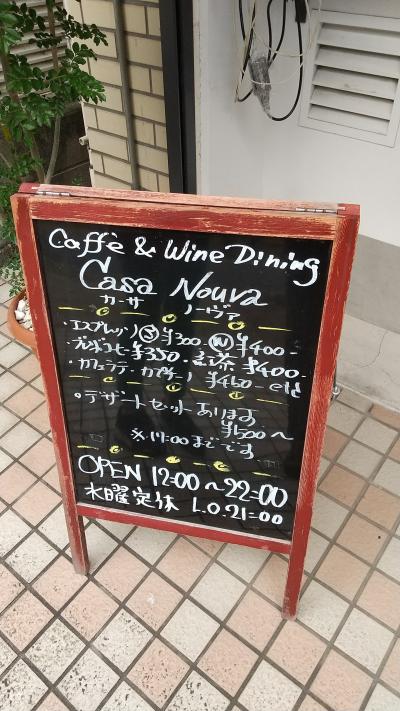 Caffè & Wine Dining
Casa Nouva
カーサ ノーヴァ
・エスプレッソ Ⓢ ¥300 Ⓦ ¥400-
・ブレンドコーヒー ¥350・紅茶 ¥400-
・カフェラテ・カプチーノ ¥460- etc
○デザートセットあります
¥600〜
※19:00までです
OPEN 12:00〜22:00
水曜定休 L.O.21:00